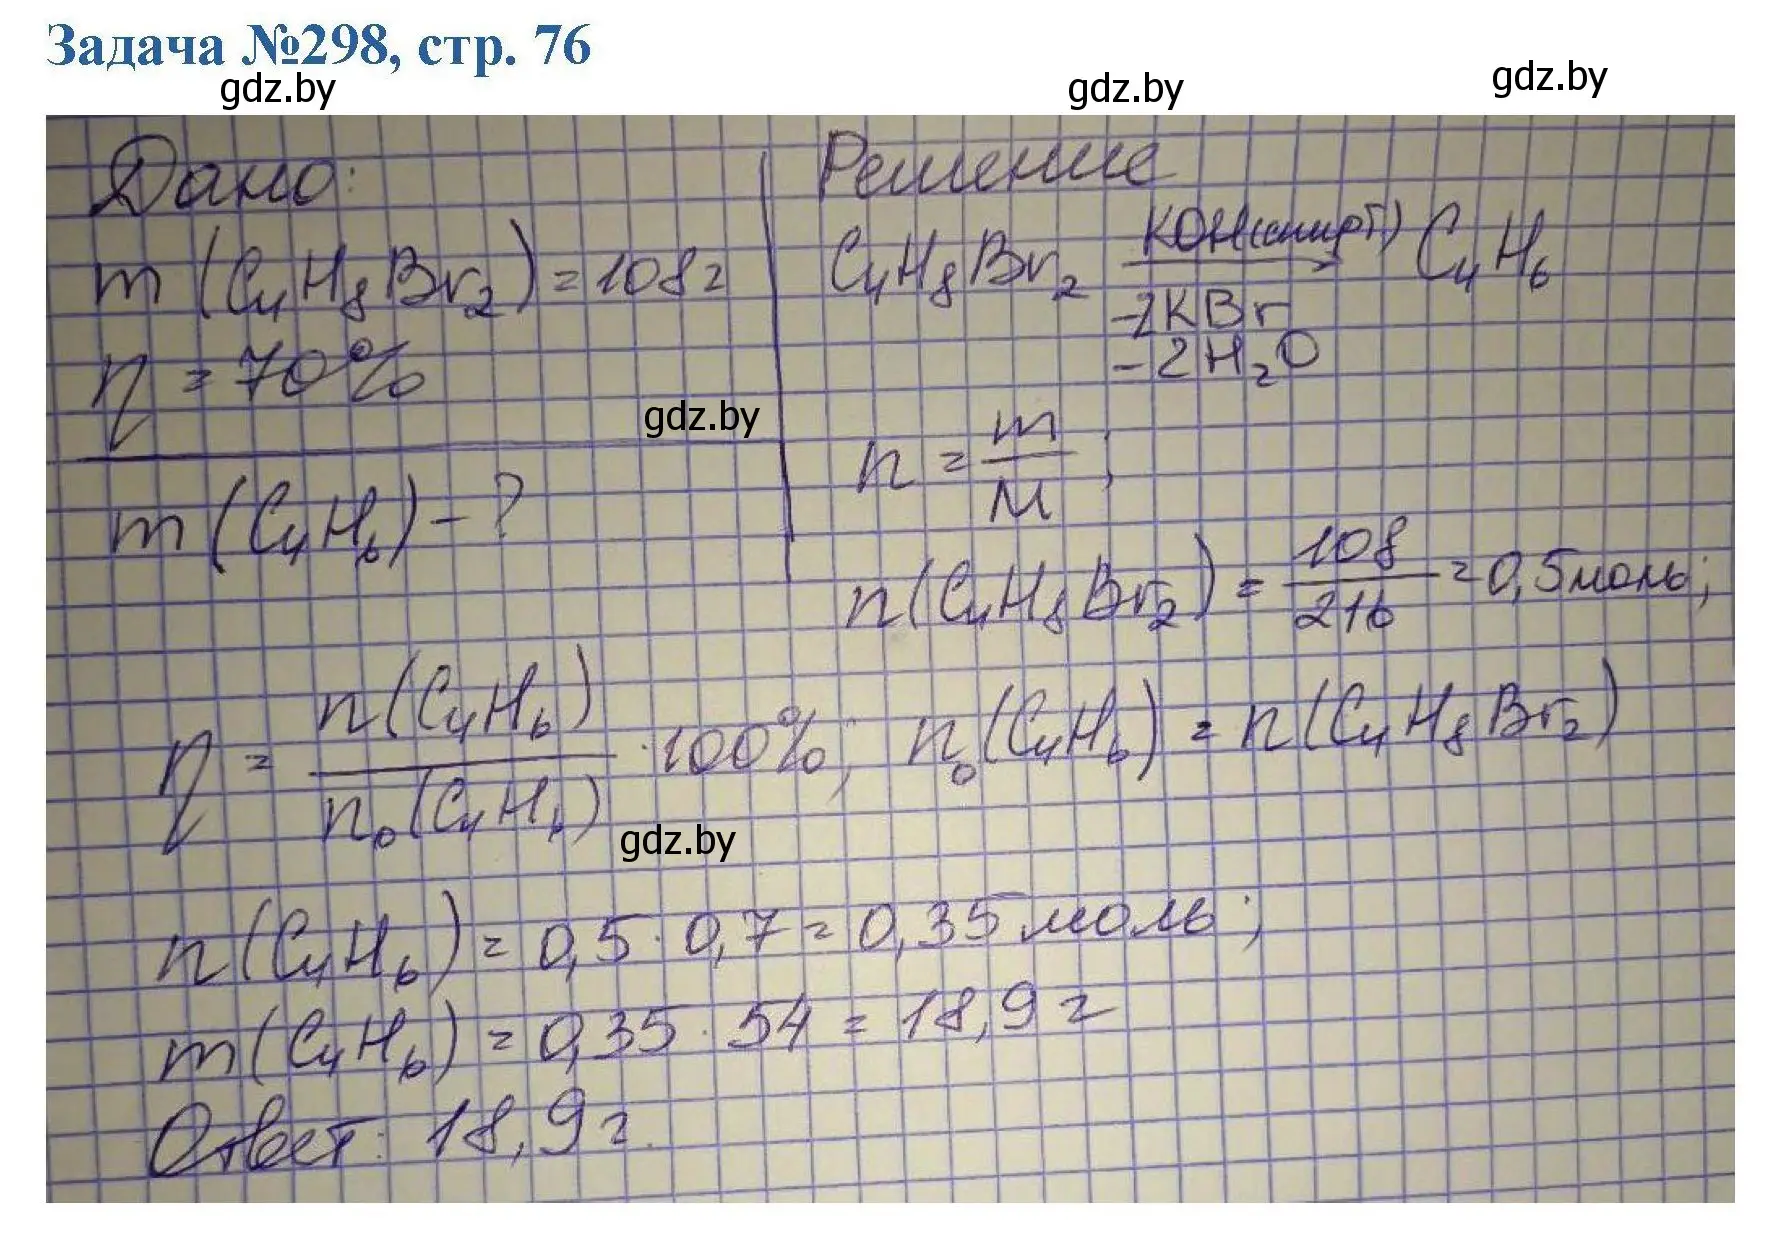 Задача №298, стр. 76
gdz.by gdz.by gdz.by
Дано:
m (C₄H₈Br₂) = 108 г
η = 70%
gdz.by
m (C₄H₆) - ?
Решение
C₄H₈Br₂ —KOH(спирт)→ C₄H₆
-2KBr
-2H₂O
n = m/M ;
n(C₄H₈Br₂) = 108/216 = 0,5 моль;
η = n(C₄H₆)/n₀(C₄H₆) · 100%; n₀(C₄H₆) = n(C₄H₈Br₂)
gdz.by
n(C₄H₆) = 0,5 · 0,7 = 0,35 моль;
m(C₄H₆) = 0,35 · 54 = 18,9 г
Ответ: 18,9 г.